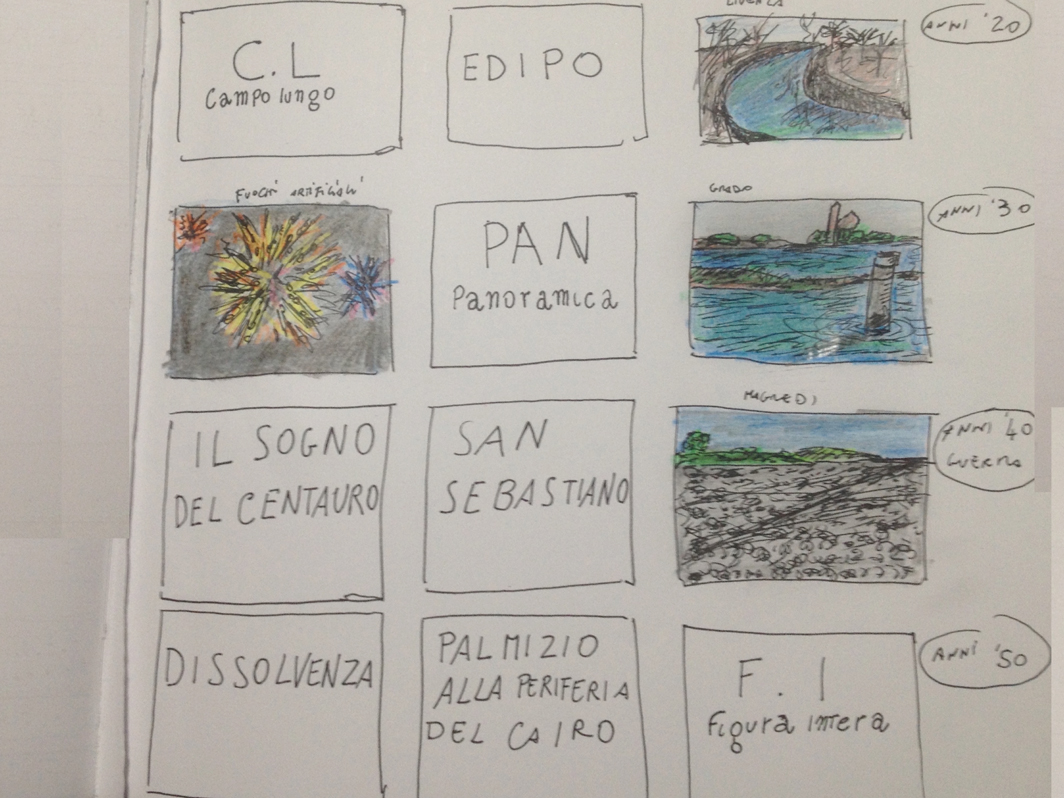 C.L
Campo lungo
EDIPO
LIVENZA
ANNI '20
FUOCHI ARTIFICIALI
PAN
Panoramica
GRADO
ANNI '30
IL SOGNO
DEL CENTAURO
SAN
SEBASTIANO
MAGREDI
ANNI '40
GUERRA
DISSOLVENZA
PALMIZIO
ALLA PERIFERIA
DEL CAIRO
F. I
figura intera
ANNI '50